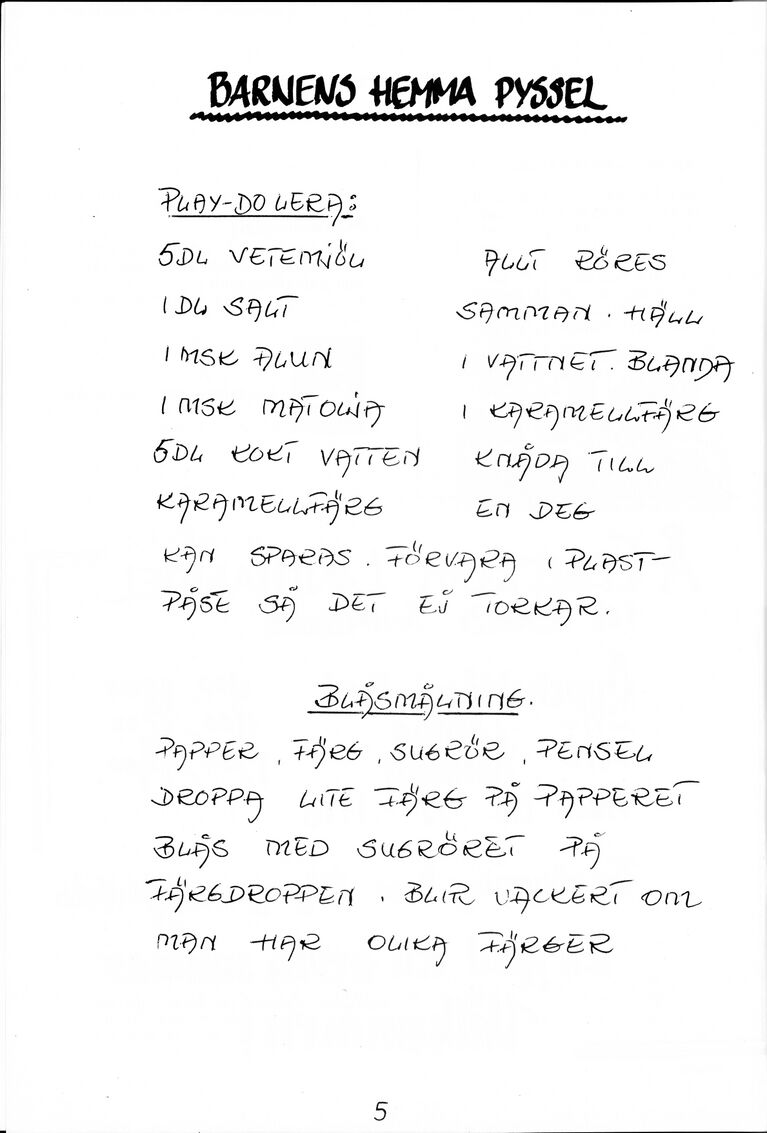 BARNENS HEMMA PYSSEL
PLAY-DO LERA:
5 DL VETEMJÖL
1 DL SALT
1 MSK ALUN
1 MSK MATOLJA
5 DL KOKT VATTEN
KARAMELLFÄRG
ALLT RÖRES
SAMMAN. HÄLL
I VATTNET. BLANDA
I KARAMELLFÄRG
KNÅDA TILL
EN DEG
KAN SPARAS. FÖRVARA I PLAST-
PÅSE SÅ DET EJ TORKAR.
BLÅSMÅLNING.
PAPPER, FÄRG, SUGRÖR, PENSEL
DROPPA LITE FÄRG PÅ PAPPERET
BLÅS MED SUGRÖRET PÅ
FÄRGDROPPEN. BLIR VACKERT OM
MAN HAR OLIKA FÄRGER
5